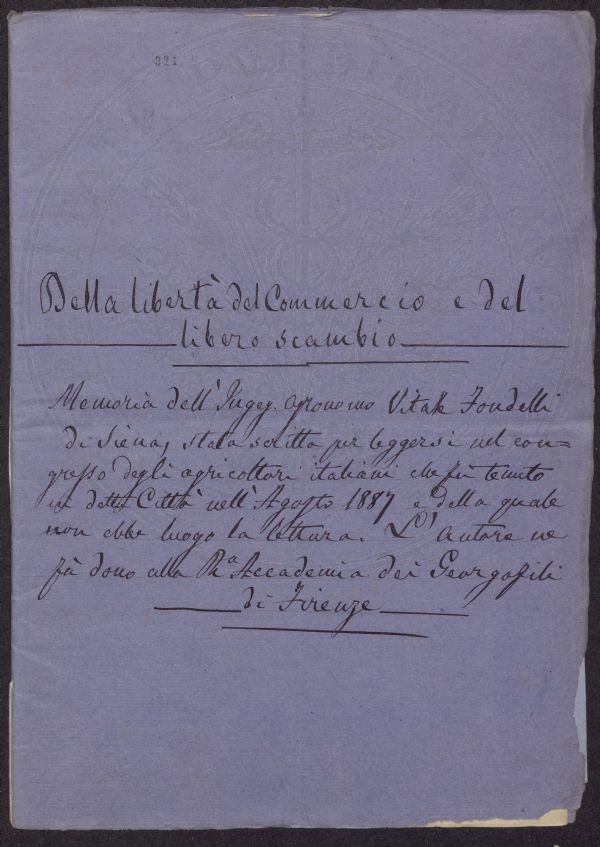 321
Della libertà del Commercio e del
libero scambio
Memoria dell'Ingeg. agronomo Vitale Fondelli
di Siena, stata scritta per leggersi nel con=
gresso degli agricoltori italiani che fù tenuto
in detta Città nell'Agosto 1887 e della quale
non ebbe luogo la lettura. L'Autore ne
fà dono alla Rª Accademia dei Georgofili
di Firenze